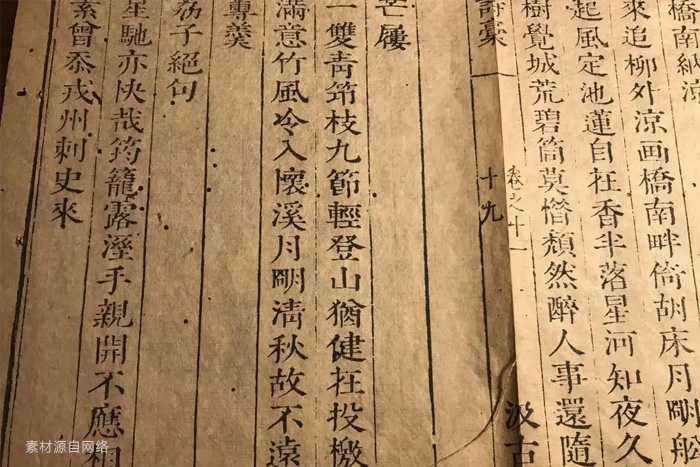 橋南納涼
來追柳外涼画橋南畔倚胡床月明船
起風定池蓮自在香半落星河知夜久
樹覺城荒碧筒莫惜頹然醉人事還隨
卷之十一
詩稾 十九 汲古
芒屨
一雙青笻枝九節輕登山猶健在投檄
滿意竹風冷入懷溪月明清秋故不遠
蓴羹
荔子絕句
星馳亦快哉筠籠露溼手親開不應相
曾忝戎州刺史來
素材源自网络